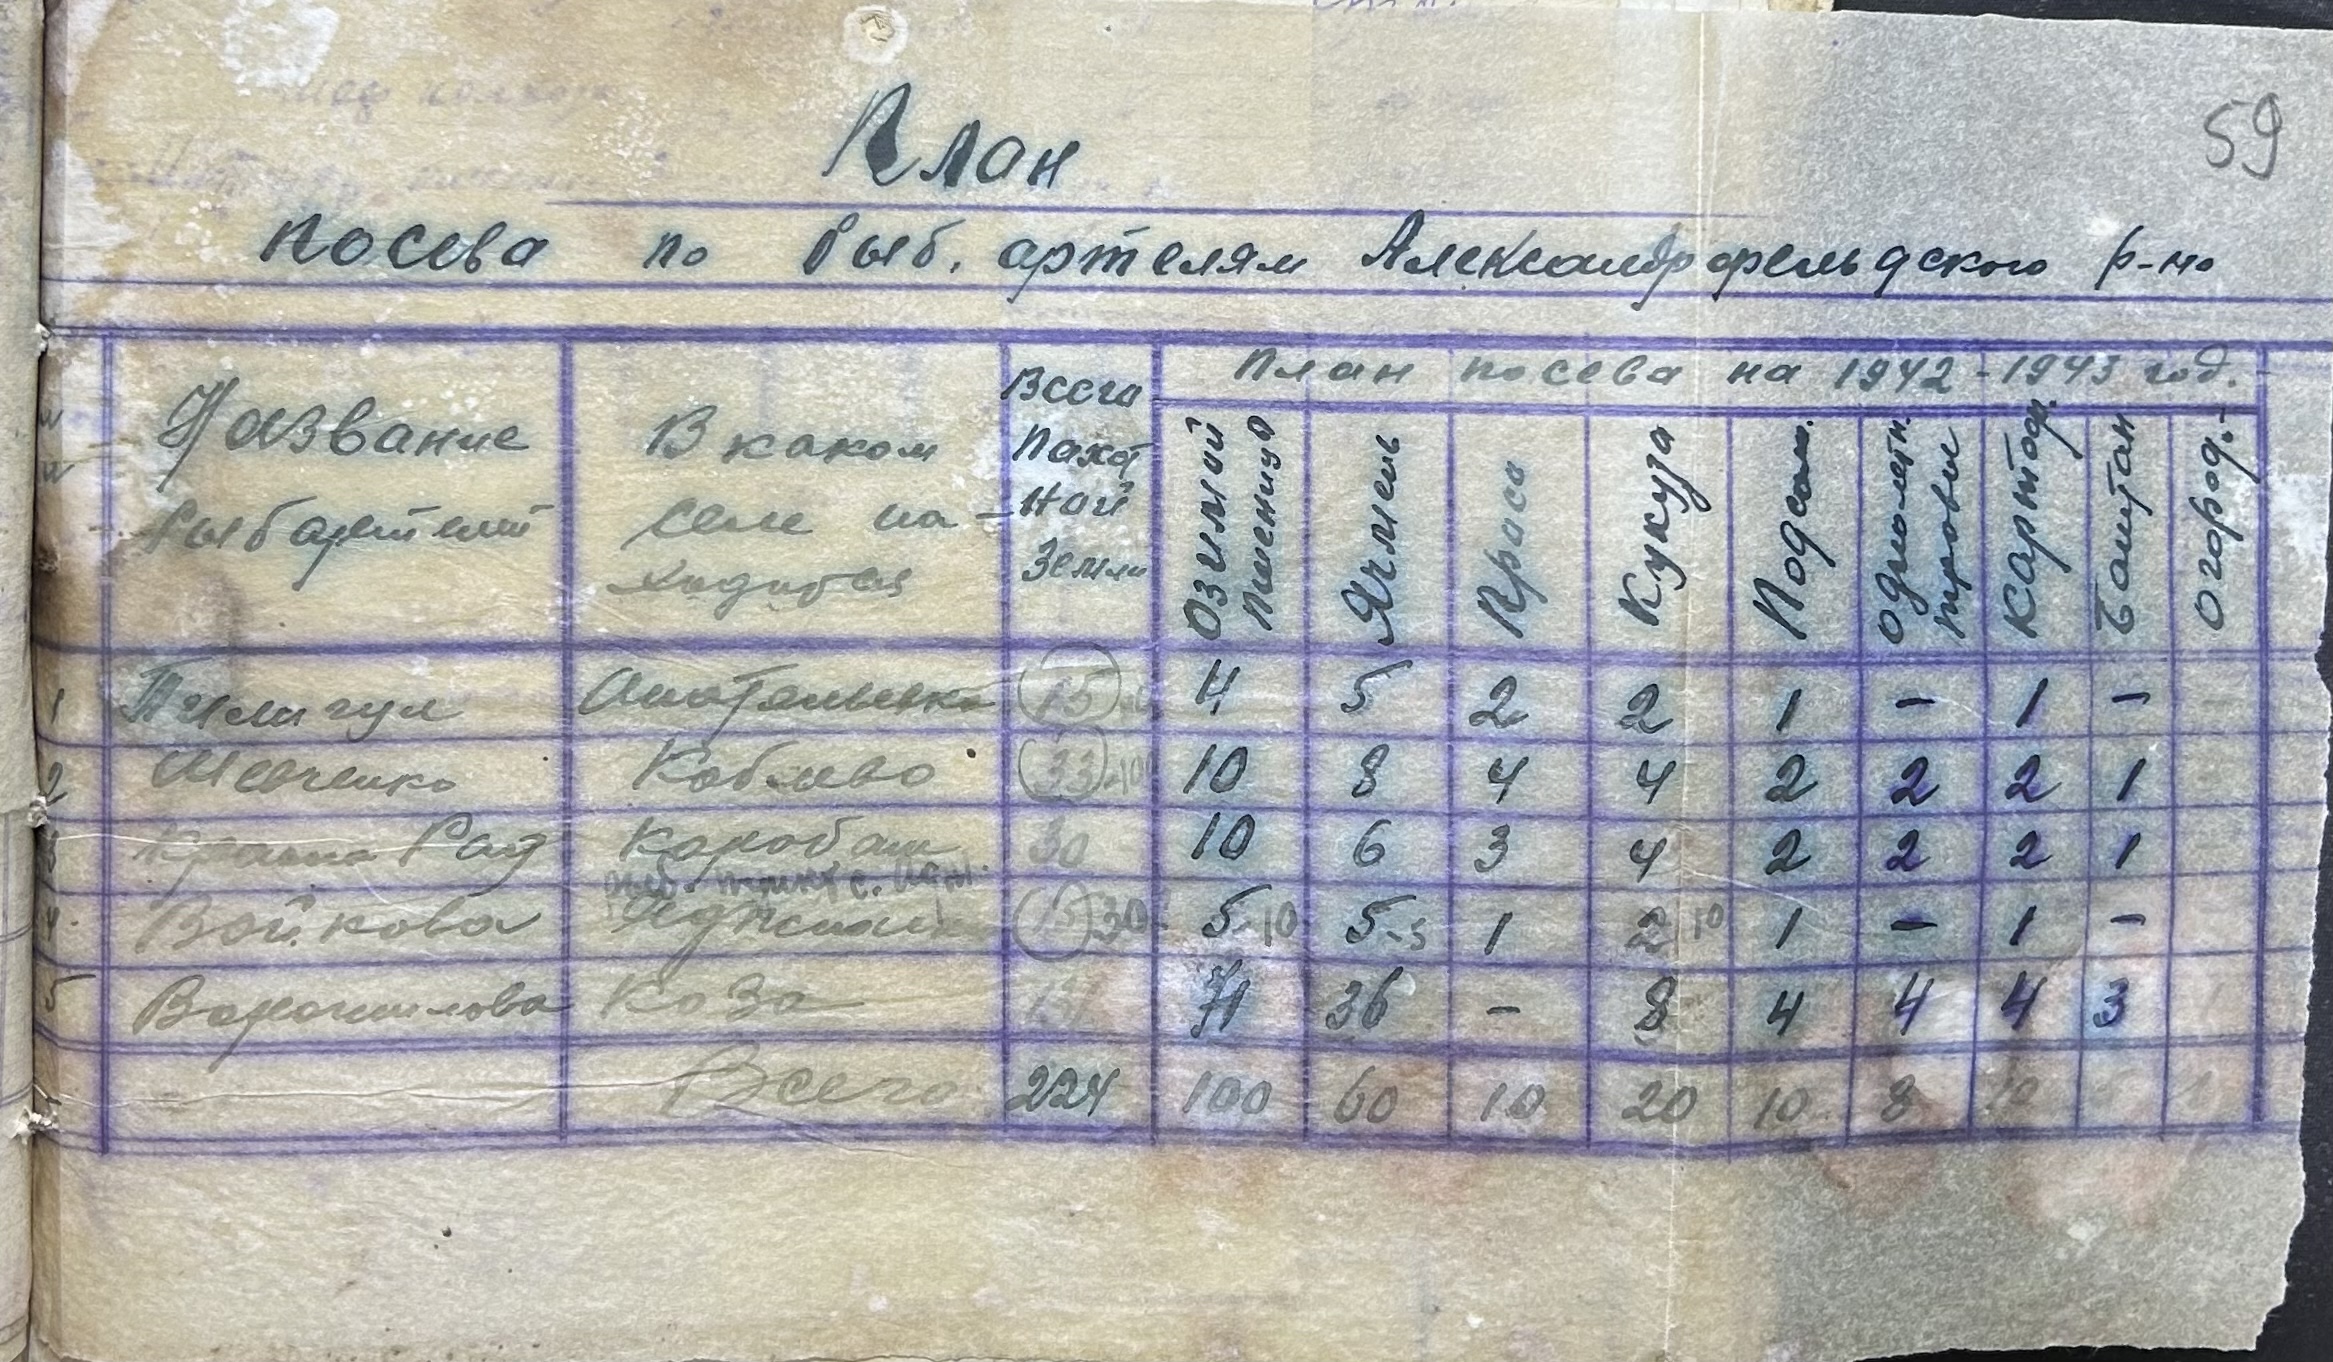 59
План
посева по Рыб. артелям Александрофельдского р-но
Название рыбартелей
В каком селе на-ходится
Всега Пахот ной Земли
План посева на 1942-1943 год.
Озимой Пшеницы
Ячмень
Прасо
Кукуза
Подсол.
Однолетн. травы
Картоф.
Баштан
Огород.-
1 Тилигул Анатольевка 15 4 5 2 2 1 - 1 -
2 Шевченко Коблево 33 10 8 4 4 2 2 2 1
3 Рад Коробаш 30 10 6 3 4 2 2 2 1
4. Войкова 15 30 5-10 5-5 1 2 10 1 - 1 -
5 Ворошилова Коза 131 71 36 - 8 4 4 4 3 1
Всего 224 100 60 10 20 10 8 10